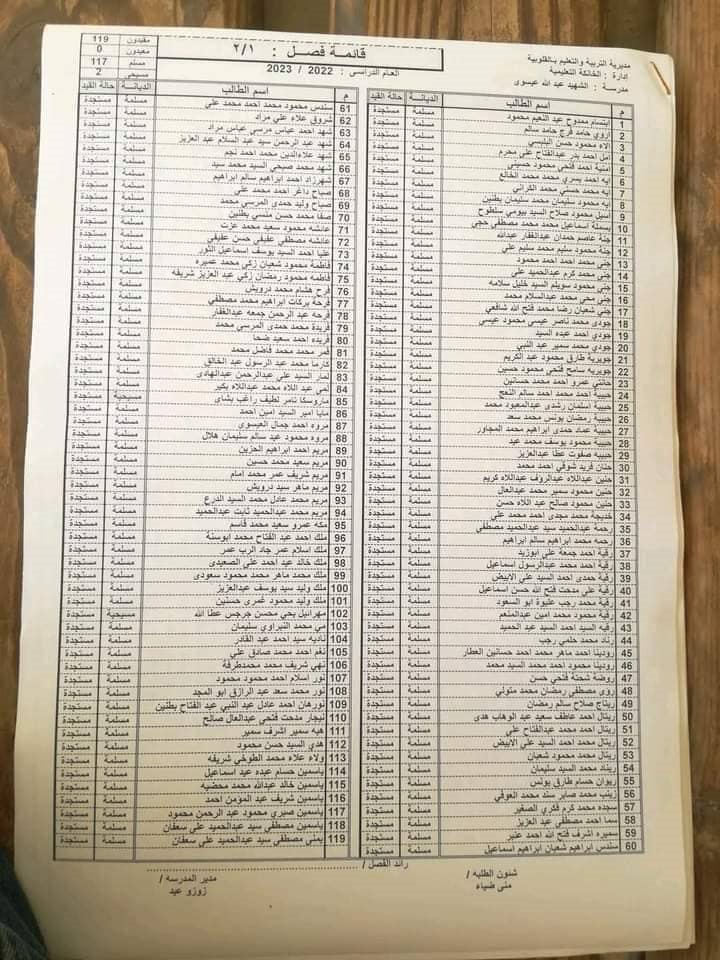 مديرية التربية والتعليم بالقلوبية
إدارة : الخانكة التعليمية
مدرسة : الشهيد عبد الله عيسوى
قائمة فصل : ٢/١
العام الدراسى : 2022 / 2023
مقيدون 119
معيدون 0
مسلم 117
مسيحى 2
م اسم الطالب الديانة حالة القيد
1 ابتسام ممدوح عبد النعيم محمود مسلمة مستجدة
2 اروي حامد فرج حامد سالم مسلمة مستجدة
3 الاء محمود حسن البليسي مسلمة مستجدة
4 امل احمد بدر عبدالفتاح علي محرم مسلمة مستجدة
5 امنية احمد فتحي محمود حسيني مسلمة مستجدة
6 ايه احمد يسري محمد محمد الخالع مسلمة مستجدة
7 ايه محمد حسني محمد الكراني مسلمة مستجدة
8 ايه محمود سليمان محمد سليمان بطنين مسلمة مستجدة
9 اسيل محمود صلاح السيد بيومي سلطوح مسلمة مستجدة
10 بسملة اسماعيل محمد محمد مصطفي حجي مسلمة مستجدة
11 جنة عاصم حمدان عبدالغفار عبدالله مسلمة مستجدة
12 جنة محمود سليم محمد سليم علي مسلمة مستجدة
13 جني محمد احمد احمد محمود مسلمة مستجدة
14 جني محمد كرم عبدالحميد علي مسلمة مستجدة
15 جني محمود سويلم السيد خليل سلامه مسلمة مستجدة
16 جني محي محمد عبدالسلام محمد مسلمة مستجدة
17 جني شعبان رضا محمد فتح الله شافعي مسلمة مستجدة
18 جودى محمد ناصر عيسى محمود عيسى مسلمة مستجدة
19 جودي احمد عبده السيد مسلمة مستجدة
20 جودي محمد سمير عبد النبي مسلمة مستجدة
21 جويرية طارق محمود عبد الكريم مسلمة مستجدة
22 جويريه سامح فتحي محمود حسين مسلمة مستجدة
23 حانتي عمرو احمد محمد حسانين مسلمة مستجدة
24 حبيبة احمد محمد احمد سالم النعج مسلمة مستجدة
25 حبيبة اسلمان رشدى عبدالمعبود محمد مسلمة مستجدة
26 حبيبة رمضان يونس محمد سعد مسلمة مستجدة
27 حبيبة عماد حمدى ابراهيم محمد المجاور مسلمة مستجدة
28 حبيبة محمود يوسف محمد عبد مسلمة مستجدة
29 حبيبه صفوت عطا عبدالعزيز مسلمة مستجدة
30 حنان فريد شوقي احمد محمد مسلمة مستجدة
31 حنين عبداللاه عبدالروف عبداللاه كريم مسلمة مستجدة
32 حنين محمود سمير محمد عبدالعال مسلمة مستجدة
33 حنين محمود صالح عبد اللاه حسن مسلمة مستجدة
34 خديجة محمد مجدى احمد محمد علي مسلمة مستجدة
35 رحمة عبدالحميد سيد عبدالحميد مصطفى مسلمة مستجدة
36 رحمه محمد ابراهيم سالم ابراهيم مسلمة مستجدة
37 رقية احمد جمعة علي ابوزيد مسلمة مستجدة
38 رقية احمد محمد عبدالرسول اسماعيل مسلمة مستجدة
39 رقية حمدى احمد السيد علي الابيض مسلمة مستجدة
40 رقية علي مدحت فتح الله حسن اسماعيل مسلمة مستجدة
41 رقية محمد رجب عليوة ابو السعود مسلمة مستجدة
42 رقية محمود محمد امين عبدالمنعم مسلمة مستجدة
43 رقيه السيد احمد السيد عبد الحميد مسلمة مستجدة
44 رناد محمد حلمي رجب مسلمة مستجدة
45 رودينا احمد ماهر محمد احمد حسانين العطار مسلمة مستجدة
46 رودينا محمود احمد محمد السيد محمد مسلمة مستجدة
47 روضة شحتة فتحي حسن مسلمة مستجدة
48 رؤى مصطفي رمضان محمد متولي مسلمة مستجدة
49 ريتاج صلاح سالم رمضان مسلمة مستجدة
50 ريتال احمد عاطف سعيد عبد الوهاب هدى مسلمة مستجدة
51 ريتال احمد محمد عبدالفتاح علي مسلمة مستجدة
52 ريتال محمد احمد السيد علي الابيض مسلمة مستجدة
53 ريتال محمد محمود شعبان مسلمة مستجدة
54 ريناد محمد السيد سليمان مسلمة مستجدة
55 ريوان حسام طارق يونس مسلمة مستجدة
56 زينب محمد صابر سند محمد العوفي مسلمة مستجدة
57 سجده محمد كرم فكري الصغير مسلمة مستجدة
58 سما احمد مصطفي عبد العزيز مسلمة مستجدة
59 سميره اشرف فتح الله احمد عنبر مسلمة مستجدة
60 سندس ابراهيم شعبان ابراهيم اسماعيل مسلمة مستجدة
م اسم الطالب الديانة حالة القيد
61 سندس محمود محمد احمد محمد علي مسلمة مستجدة
62 شروق علاء علي مراد مسلمة مستجدة
63 شهد احمد عباس مرسي عباس مراد مسلمة مستجدة
64 شهد عبد الرحمن سيد عبد السلام عبد العزيز مسلمة مستجدة
65 شهد علاءالدين محمد احمد نجم مسلمة مستجدة
66 شهد محمد صبحي السيد محمد سيد مسلمة مستجدة
67 شهرزاد احمد ابراهيم سالم ابراهيم مسلمة مستجدة
68 صباح داغر احمد محمد علي مسلمة مستجدة
69 صباح وليد حمدى المرسي محمد مسلمة مستجدة
70 صفا محمد حسن منسي بطنين مسلمة مستجدة
71 عائشه محمود سعيد محمد عزت مسلمة مستجدة
72 عائشه مصطفي عفيفي حسن عفيفي مسلمة مستجدة
73 عليا احمد السيد يوسف اسماعيل النور مسلمة مستجدة
74 فاطمة محمود شعبان زكي محمد عميره مسلمة مستجدة
75 فاطمه محمود رمضان زكي عبد العزيز شريفه مسلمة مستجدة
76 فرح هشام محمد درويش مسلمة مستجدة
77 فرحه بركات ابراهيم محمد مصطفي مسلمة مستجدة
78 فرحه عبد الرحمن جمعه عبدالغفار مسلمة مستجدة
79 فريدة محمد حمدى المرسي محمد مسلمة مستجدة
80 فريده احمد سعيد ضحا مسلمة مستجدة
81 قمر محمد محمد فاضل محمد مسلمة مستجدة
82 كارما محمد عبد الرسول عبد الخالق مسلمة مستجدة
83 لمار السيد علي عبدالرحمن عبدالهادى مسلمة مستجدة
84 لمي عبد اللاه محمد عبداللاه بكير مسلمة مستجدة
85 ماروسكا تامر لطيف راغب بشاى مسيحية مستجدة
86 مايا امير السيد امين احمد مسلمة مستجدة
87 مروه احمد جمال العيسوى مسلمة مستجدة
88 مروه محمود عيد سالم سليمان هلال مسلمة مستجدة
89 مريم احمد ابراهيم الحزين مسلمة مستجدة
90 مريم سعيد محمد حسين مسلمة مستجدة
91 مريم شريف عمر محمد امام مسلمة مستجدة
92 مريم ماهر سيد درويش مسلمة مستجدة
93 مريم محمد عادل محمد السيد الدرع مسلمة مستجدة
94 مريم محمد عبدالحميد ثابت عبدالحميد مسلمة مستجدة
95 مكه عمرو سعيد محمد قاسم مسلمة مستجدة
96 ملك احمد عبد الفتاح محمد ابوستة مسلمة مستجدة
97 ملك اسلام عمر جاد الرب عمر مسلمة مستجدة
98 ملك خالد عبد احمد علي الصعيدى مسلمة مستجدة
99 ملك محمد ماهر محمد محمود سعودى مسلمة مستجدة
100 ملك وليد سيد يوسف عبدالعزيز مسلمة مستجدة
101 ملك وليد محمود غمري حسنين مسلمة مستجدة
102 مهرائيل يحي محسن جرجس عطا الله مسيحية مستجدة
103 مي محمد النبراوي سليمان مسلمة مستجدة
104 ناديه سيد احمد عبد القادر مسلمة مستجدة
105 نغم احمد محمد صادق علي مسلمة مستجدة
106 نهي شريف محمد محمدطرفة مسلمة مستجدة
107 نور اسلام احمد محمود محمود مسلمة مستجدة
108 نور محمد سعد عبد الرازق ابو المجد مسلمة مستجدة
109 نورهان احمد عادل عبد النبي عبد الفتاح بطنين مسلمة مستجدة
110 نيجار مدحت فتحي عبدالعال صالح مسلمة مستجدة
111 هبه سمير اشرف سمير مسلمة مستجدة
112 هدي السيد حسن محمود مسلمة مستجدة
113 ولاء علاء محمد الطوخي شريفه مسلمة مستجدة
114 ياسمين حسام عبده عيد اسماعيل مسلمة مستجدة
115 ياسمين خالد عبدالله محمد محضيه مسلمة مستجدة
116 ياسمين شريف عبد المؤمن احمد مسلمة مستجدة
117 ياسمين صبري محمود عبد الرحمن محمود مسلمة مستجدة
118 ياسمين مصطفي سيد عبدالحميد علي سعفان مسلمة مستجدة
119 يمني مصطفي سيد عبدالحميد علي سعفان مسلمة مستجدة
شئون الطلبه /
منى ضياء
رائد الفصل /
مدير المدرسه /
زوزو عيد